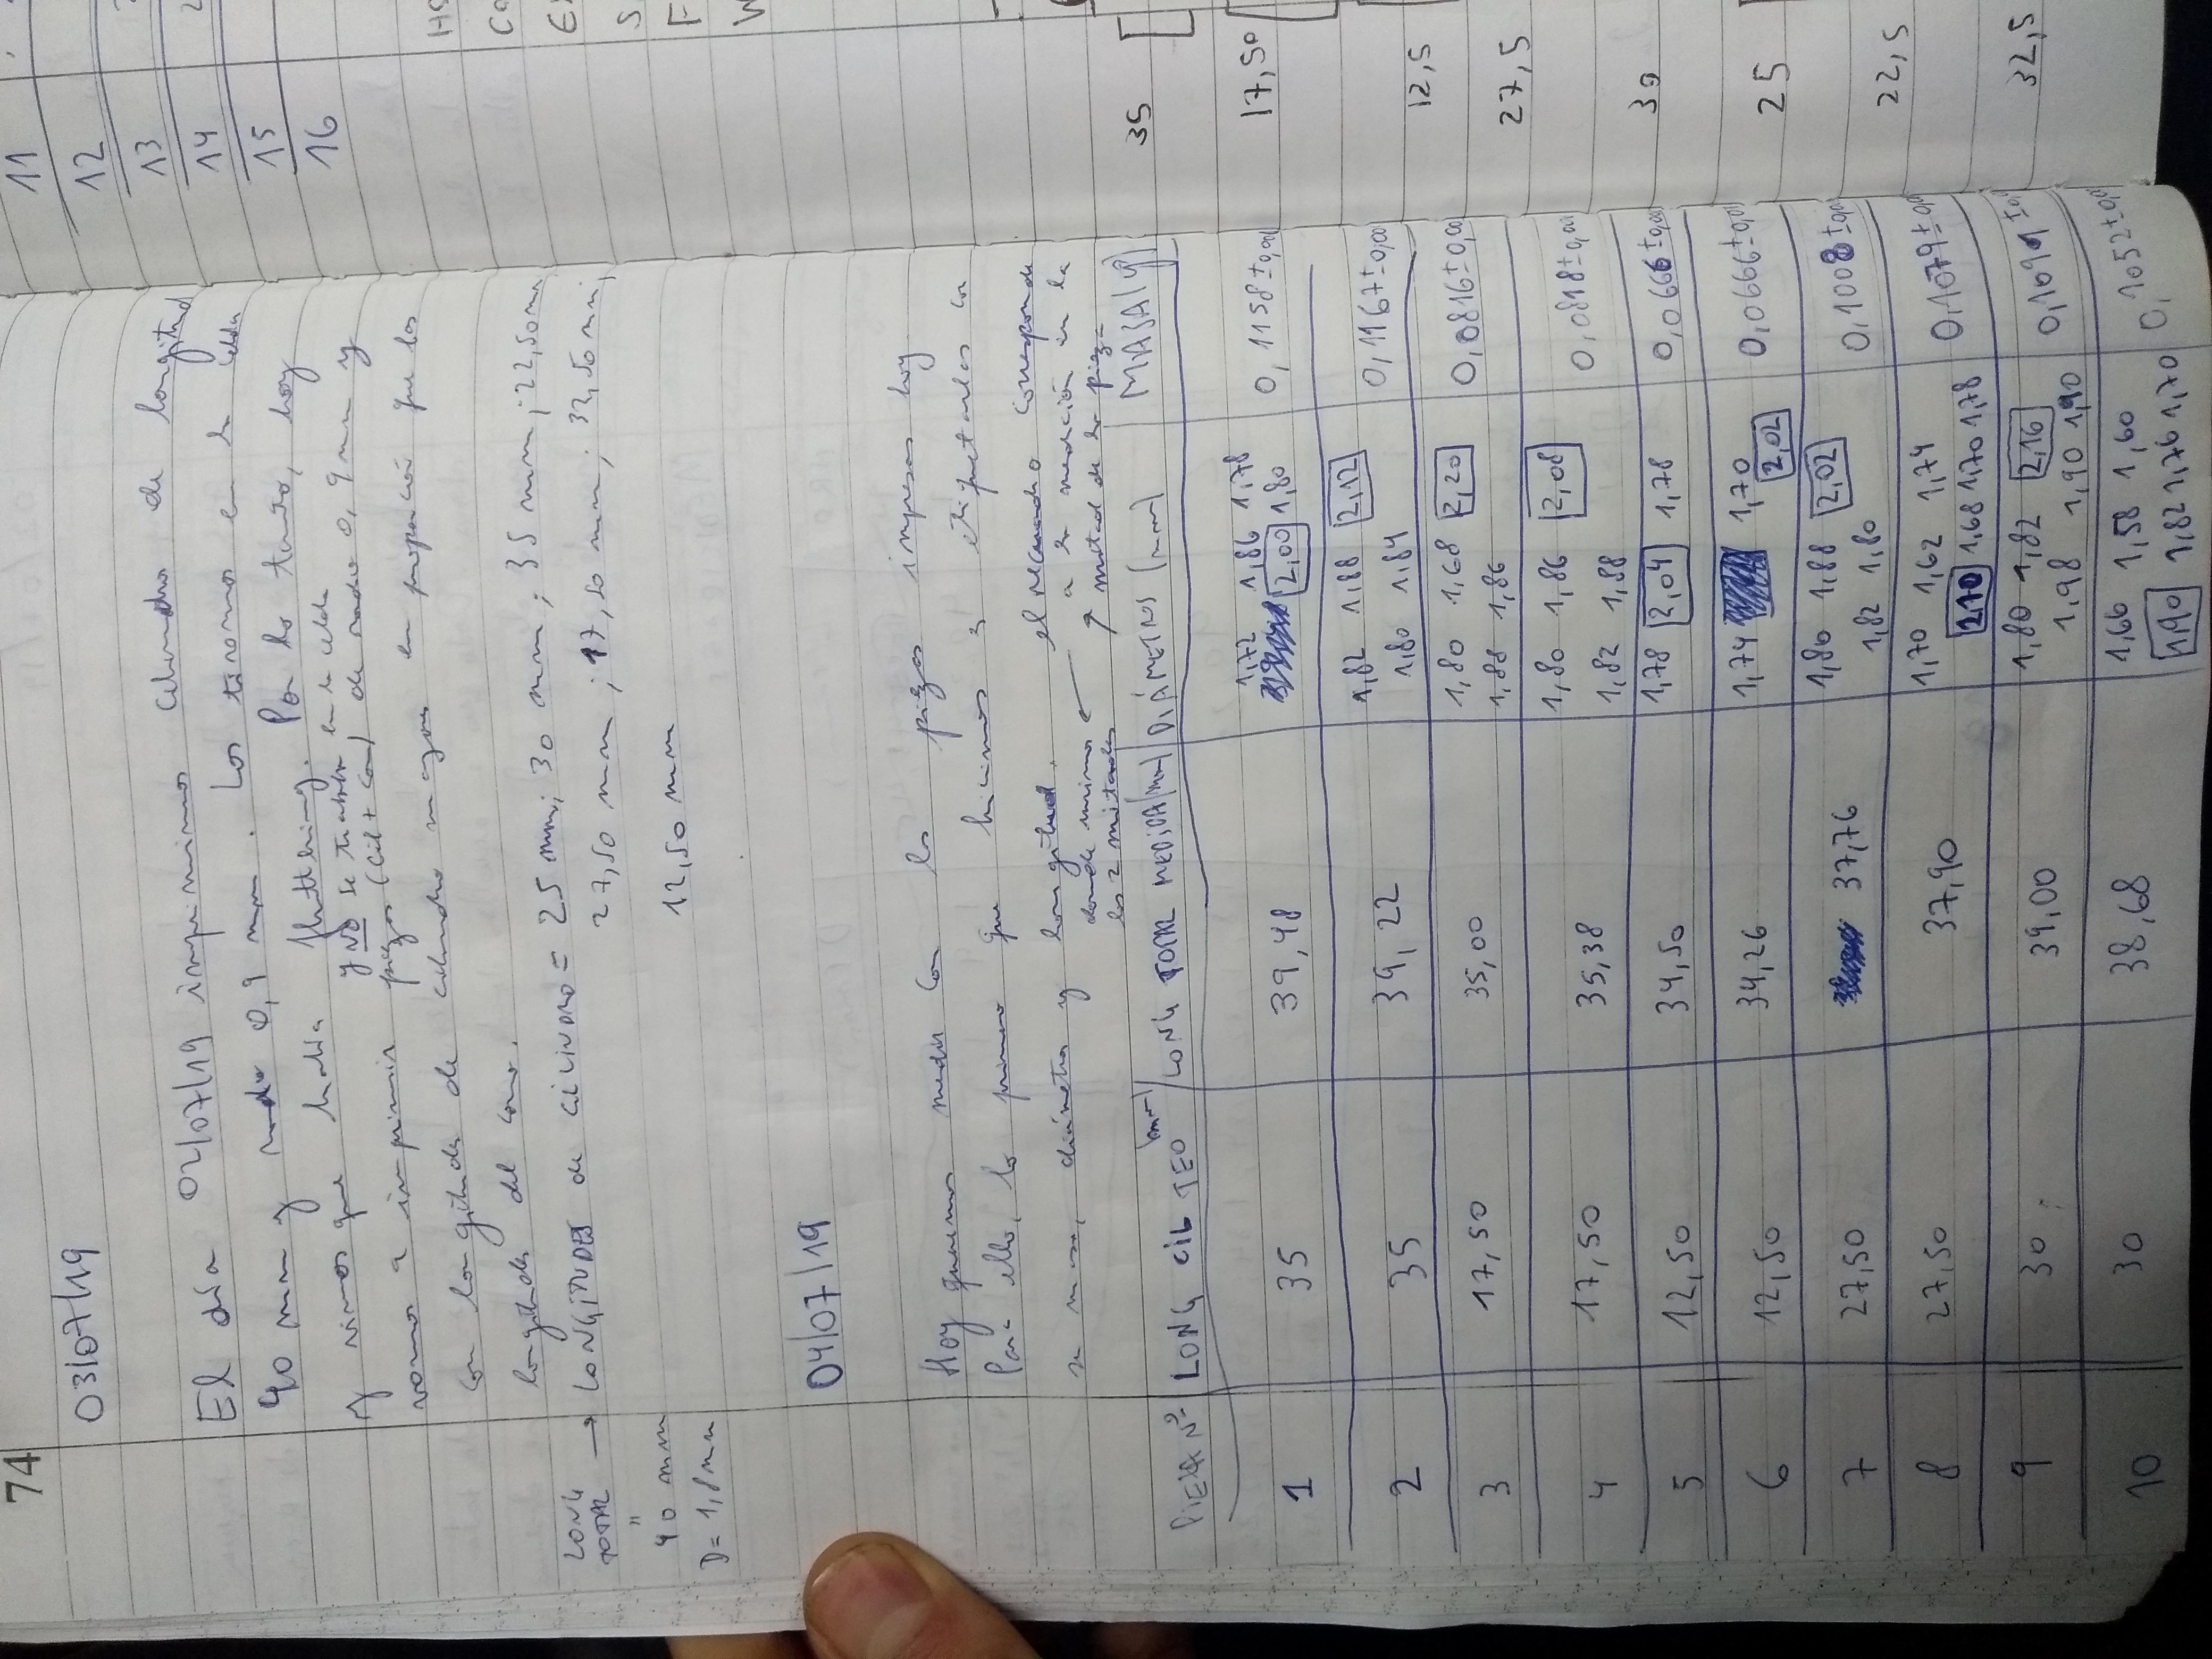 74
03/07/19
El día 02/07/19 imprimimos cilindros de longitud
40 mm y radio 0,9 mm. Los tiramos en la celda
y vimos que había fluttering. Por lo tanto, hoy
y NO se tiraba en la celda
vamos a imprimir piezas (cil + cono) de radio 0,9 mm y
con longitudes de cilindro mayores en proporción que las
longitudes del cono.
LONG TOTAL → LONGITUDES de CILINDRO = 25 mm; 30 mm; 35 mm; 22,50 mm
" 27,50 mm; 17,50 mm; 32,50 mm;
40 mm 12,50 mm
D = 1,8 mm
04/07/19
Hoy queremos medir con las piezas impresas hoy
Para ello, lo primero que hicimos es etiquetarlas con
su masa, diámetro y longitud. el recuadro corresponde
donde unimos a la medición en la
las 2 mitades mitad de la pieza
PIEZA Nº LONG CIL TEO (mm) LONG TOTAL MEDIDA (mm) DIÁMETROS (mm) MASA (g)
1 35 39,48 1,72 1,86 1,78 2,00 1,80 0,1158±0,00
2 35 39,22 1,82 1,88 2,12 1,80 1,84 0,1167±0,00
3 17,50 35,00 1,80 1,68 2,20 1,88 1,86 0,0816±0,00
4 17,50 35,38 1,80 1,86 2,08 1,82 1,88 0,0818±0,00
5 12,50 34,50 1,78 2,04 1,78 0,0666±0,00
6 12,50 34,26 1,74 1,70 2,02 0,0666±0,00
7 27,50 37,76 1,80 1,88 2,02 1,82 1,80 0,1008±0,0
8 27,50 37,90 1,70 1,62 1,74 2,10 1,68 1,70 1,78 0,1079±0,0
9 30 39,00 1,80 1,82 2,16 1,98 1,90 1,90 0,1099±0,0
10 30 38,68 1,66 1,58 1,60 1,90 1,82 1,76 1,70 0,1052±0,
11
12
13
14
15
16
35
17,50
12,5
27,5
30
25
22,5
32,5